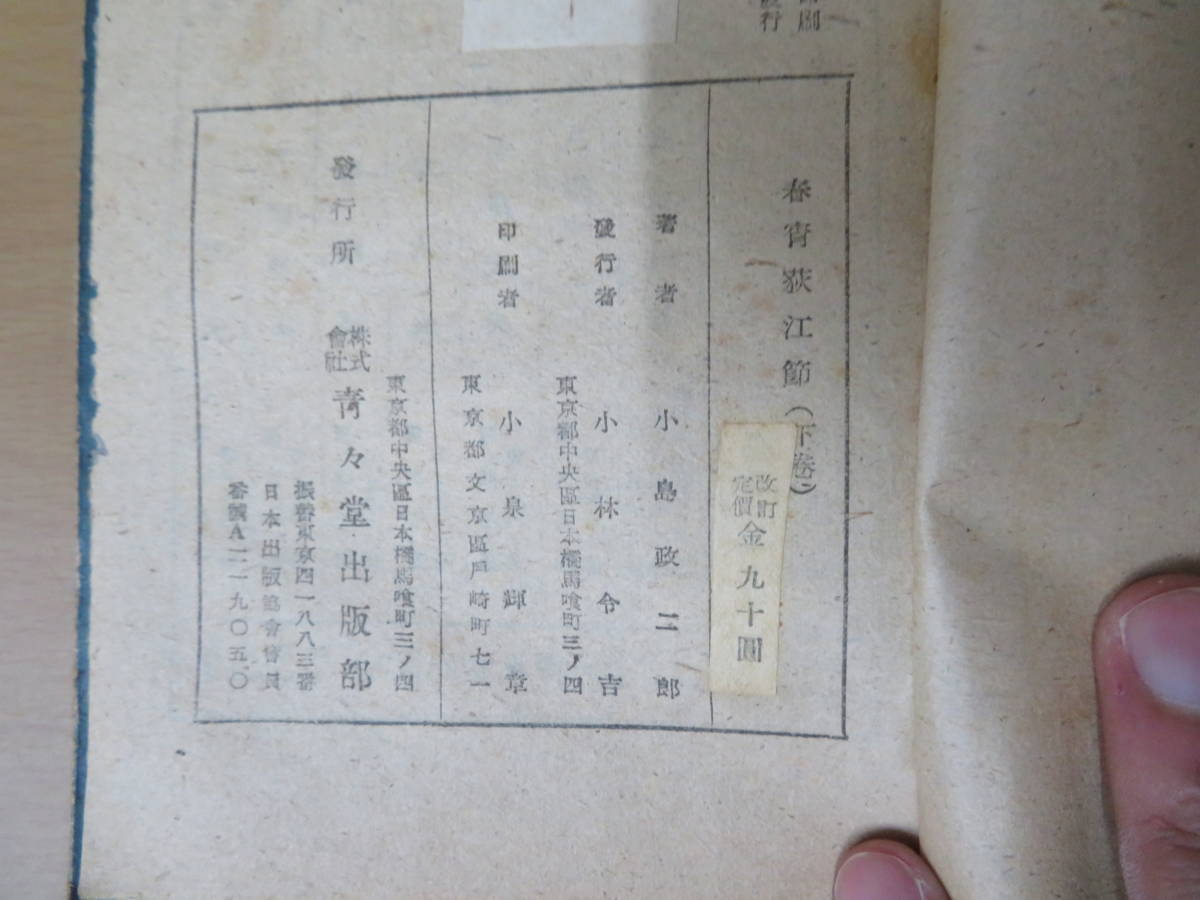 印刷
發行
春宵荻江節（下卷）
改訂定價金九十圓
著者 小島政二郎
發行者 小林令吉
東京都中央區日本橋馬喰町三ノ四
印刷者 小泉輝章
東京都文京區戸崎町七一
東京都中央區日本橋馬喰町三ノ四
發行所 株式會社靑々堂出版部
振替東京四一八八三番
日本出版協會會員
番號A二一九〇五〇